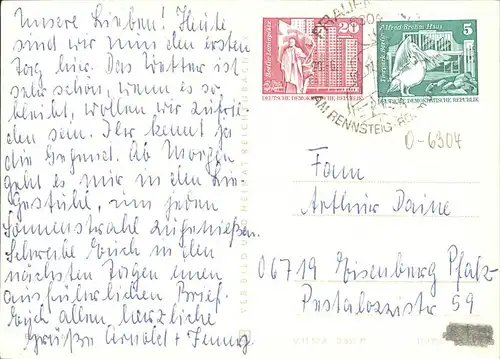 Unsere Lieben! Heute
sind wir nun den ersten
Tag hier. Das Wetter ist
sehr schön, wenn es so
bleibt, wollen wir zufrie
den sein. Ihr kennt ja
die Gegend. Ab Morgen
geht es mir in den Lie-
gestuhl, um jeden
Sonnenstrahl zu genießen.
Schreibe Euch in den
nächsten Tagen einen
ausführlichen Brief.
Euch allen herzliche
Grüße Arnold + Jenny
VEB BILD UND HEIMAT REICHENBACH
20
Berlin, Leninplatz
DEUTSCHE DEMOKRATISCHE REPUBLIK
5
Alfred-Brehm-Haus
Tierpark Berlin
DEUTSCHE DEMOKRATISCHE REPUBLIK
AM RENNSTEIG
O-6304
Fam
Arthur Daine
06719 Eisenberg Pfalz
Pestalozzistr 59